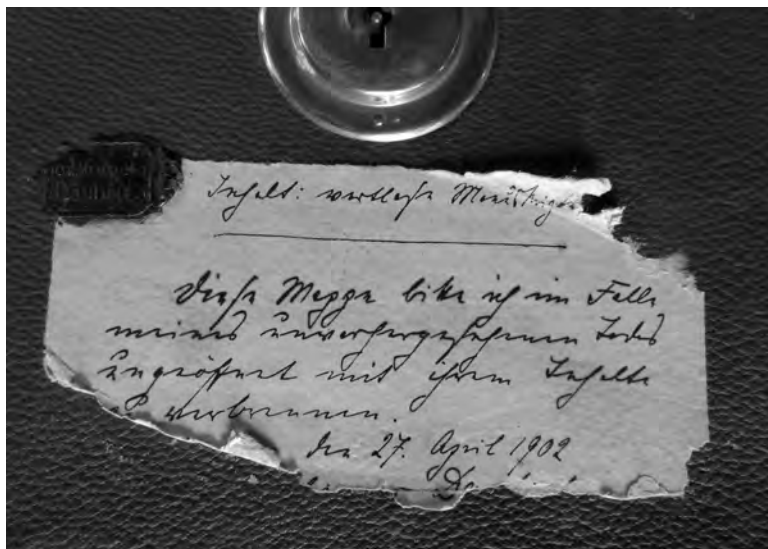 Inhalt: wertlose Manuskripte
Diese Mappe bitte ich im Falle
meines unvorhergesehenen Todes
ungeöffnet mit ihrem Inhalte
zu verbrennen.
den 27. April 1902